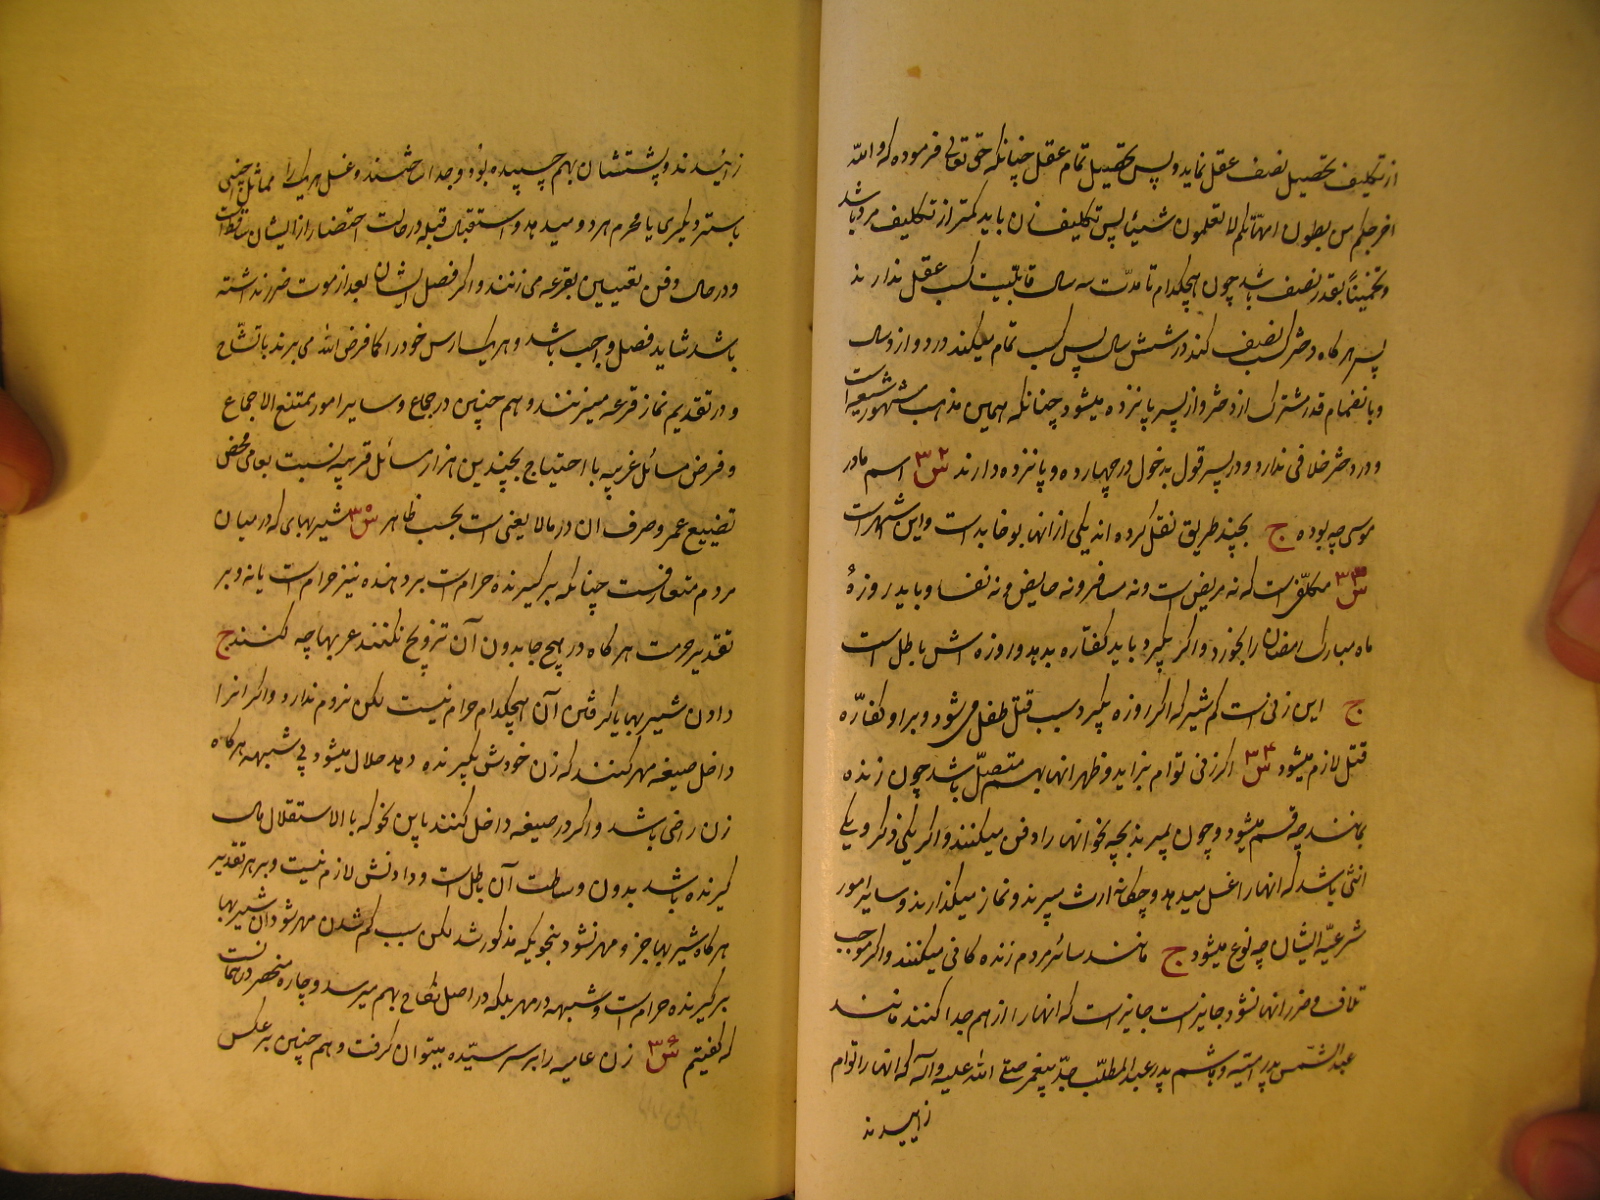 از تکلیف تحصیل نصف عقل نماید و پس تحصیل تمام عقل چنانکه حق تعالی فرموده که والله
اخرجکم من بطون امهاتکم لا تعلمون شیئا پس تکلیف زن باید کمتر از تکلیف مرد باشد
و تخمیناً بقدر نصف باشد چون هیچکدام تا مدت سه سال قابلیت کسب عقل ندارند
پس هر گاه دختر کسب نصف کند در شش سال پس کسب تمام میکند در دوازده سال
و بانضمام قدر مشترک از دختر و از پسر پانزده میشود چنانکه همین مذهب مشهور شیعه است
و در دختر خلافی ندارد و در پسر قول بدخول در چهارده و پانزده دارند س۳۲ اسم مادر
موسی چه بوده ج بچند طریق نقل کرده اند یکی از انها یوخابد است و این اشهر است
س۳۳ مکلفی است که نه مریض است و نه مسافر و نه حایض و نه نفسا و باید روزهٔ
ماه مبارک رمضان را بخورد و اگر بگیرد باید کفاره بدهد و روزه اش باطل است
ج این زنی است کم شیر که اگر روزه بگیرد سبب قتل طفل می شود و بر او کفاره
قتل لازم میشود س۳۴ اگر زنی توام بزاید و ظهر انها بهم متصل باشد چون زنده
بمانند چه قسم میشود و چون بمیرند بچه نحو انها را دفن میکنند و اگر یکی ذکر و یکی
انثی باشد که انها را غسل میدهد و چگونه ارث میبرند و نماز میگذارند و سایر امور
شرعیه ایشان چه نوع میشود ج مانند سائر مردم زندگانی میکنند و اگر موجب
تلاف و ضرر انها نشود جایز است جایز است که انها را از هم جدا کنند مانند
عبد الشمس پدر امیه و هاشم پدر عبد المطلب جد پیغمبر صلی الله علیه و آله که انها را توام
زاییدند
زائیدند و پشتشان بهم چسپیده بود و جدا ساختند و غسل هر یک را مماثل اجنبی
با ستر دیگری یا محرم هر دو میدهد و استقبال قبله در حالت احتضار از ایشان ساقط است
و در حال دفن تعیین بقرعه می زنند و اگر فصل ایشان بعد از موت ضرر نداشته
باشد شاید فصل واجب باشد و هر یک ارث خود را کما فرض الله می برند با تشاح
و در تقدیم نماز قرعه میزنند و هم چنین در جماع و سایر امور ممتنع الاجماع
و فرض مسائل غریبه با احتیاج بچندین هزار مسائل قریبه نسبت بعامی محض
تضییع عمر و صرف ان در مالا یعنی است بحسب ظاهر س۳۵ شیربهای که در میان
مردم متعارفست چنانکه بر گیرنده حرام است بر دهنده نیز حرام است یا نه و بر
تقدیر حرمت هر گاه در هیچ جا بدون آن تزویج نکنند عربها چه کنند ج
دادن شیربها یا گرفتن آن هیچکدام حرام نیست لکن لزوم ندارد و اگر انرا
داخل صیغه مهر کنند که زن خودش بگیرنده دهد حلال میشود بی شبهه هر گاه
زن راضی باشد و اگر در صیغه داخل کنند باین نحو که بالاستقلال مال
گیرنده باشد بدون وساطت آن باطل است و دادنش لازم نیست و بر هر تقدیر
هر گاه شیربها جزو مهر نشود بنحویکه مذکور شد لکن سبب کم شدن مهر شود آن شیربها
بر گیرنده حرام است و شبهه در مهر بلکه در اصل نکاح بهم میرسد و چاره منحصر در همانست
که گفتیم س۳۶ زن عامیه را بر سر سیده میتوان گرفت و هم چنین بر عکس